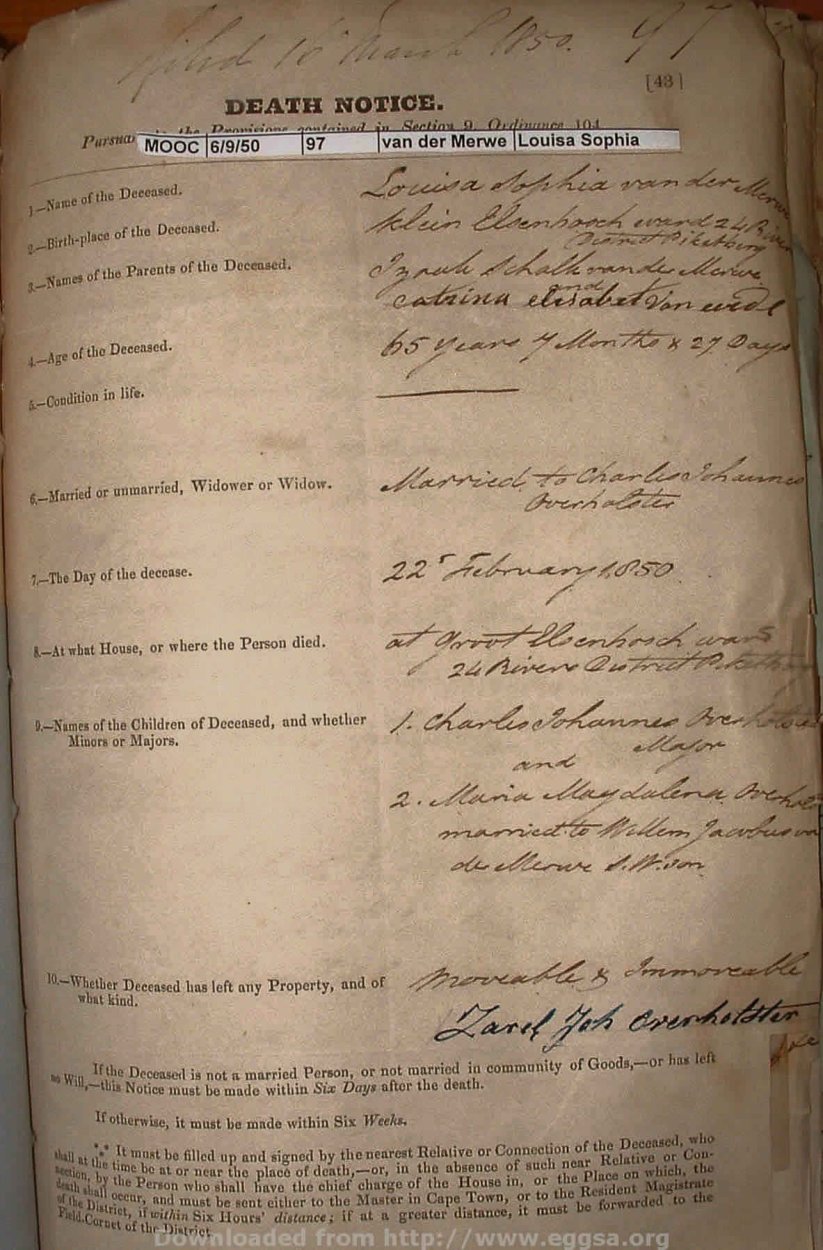 Filed 16 March 1850. 97
[43]
DEATH NOTICE.
Pursuant to the Provisions contained in Section 9, Ordinance 104
MOOC 6/9/50 97 van der Merwe Louisa Sophia
1.—Name of the Deceased. Louisa Sophia van der Merwe
2.—Birth-place of the Deceased. Klein Elsenbosch ward 24 Rivers
District Piketberg
3.—Names of the Parents of the Deceased. Izaak Schalk van der Merwe
and
catrina elisabet Van
4.—Age of the Deceased. 65 Years 7 Months & 27 Days
5.—Condition in life.
6.—Married or unmarried, Widower or Widow. Married to Charles Johannes
Overholster
7.—The Day of the decease. 22 February 1850
8.—At what House, or where the Person died. at Groot Elsenbosch ward
24 Rivers District
9.—Names of the Children of Deceased, and whether
Minors or Majors.
1. Charles Johannes
Major
and
2. Maria Magdalena
married to Willem Jacobus van
der Merwe S.W. son
10.—Whether Deceased has left any Property, and of
what kind.
Moveable & Immoveable
Joh Overholster
If the Deceased is not a married Person, or not married in community of Goods,—or has left
no Will,—this Notice must be made within Six Days after the death.
If otherwise, it must be made within Six Weeks.
*** It must be filled up and signed by the nearest Relative or Connection of the Deceased, who
shall at the time be at or near the place of death,—or, in the absence of such near Relative or Con-
nection, by the Person who shall have the chief charge of the House in, or the Place on which, the
death shall occur, and must be sent either to the Master in Cape Town, or to the Resident Magistrate
of the District, if within Six Hours' distance; if at a greater distance, it must be forwarded to the
Field-Cornet of the District.
Downloaded from http://www.eggsa.org